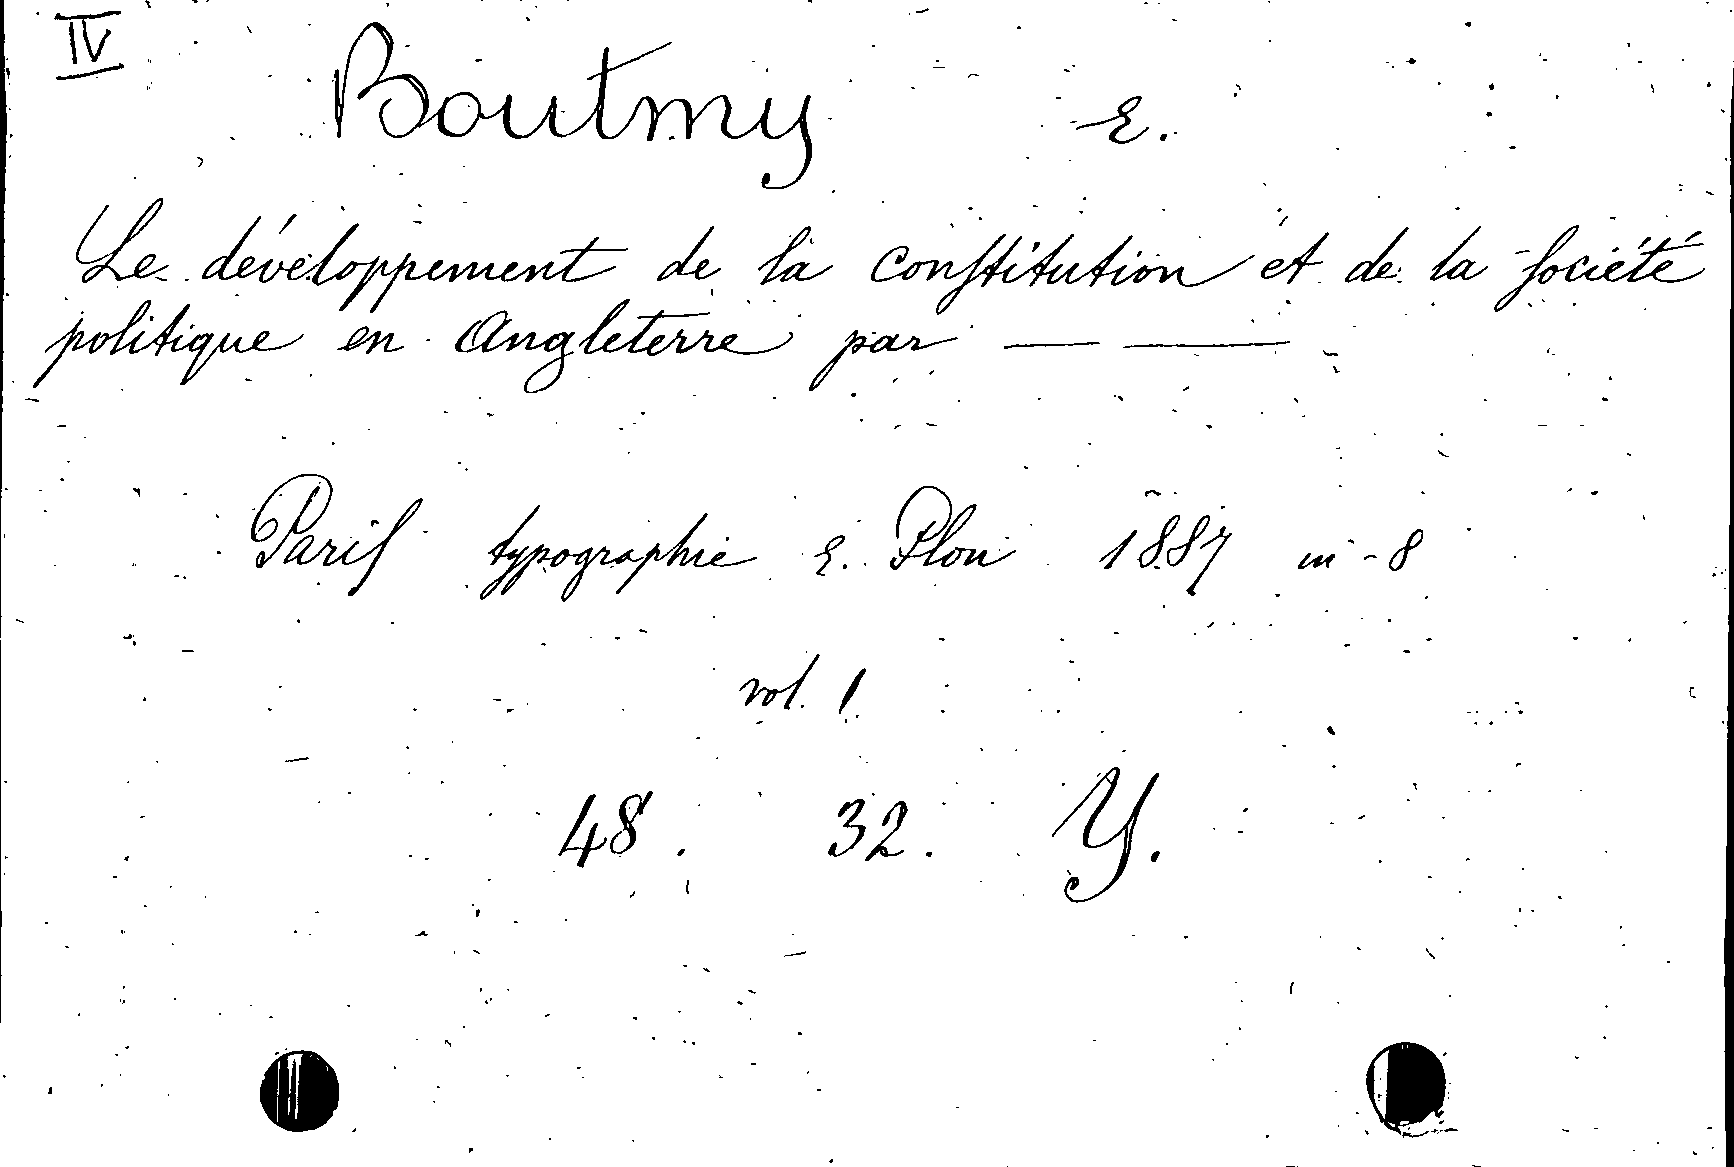 IV
Boutmy E.
Le développement de la constitution et de la société
politique en Angleterre par — —
Paris typographie E. Plon 1887 in-8
vol. 1
48. 32. Y.